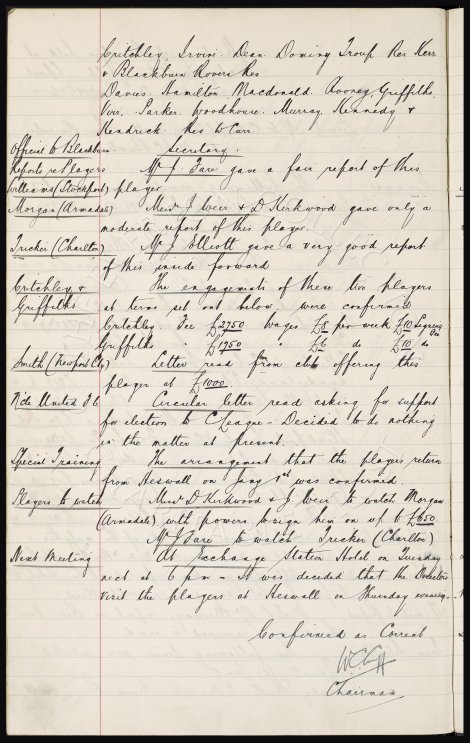 Critchley, Irvine. Dean. Dominy Troup. Res Kerr
& Blackburn Rovers Res
Davies. Hamilton Macdonald. Rooney, Griffiths
Kerr. Parker. Woodhouse. Murray. Kennedy &
Kendrick Res W Carr.
Official to Blackburn Secretary.
Reports re Players Mr J. Fare gave a fair report of this
Williams (Stockport) player
Morgan (Armadale) Messrs J Weir & D Kirkwood gave only a
moderate report of this player.
Tricker (Charlton) Mr J Elliott gave a very good report
of this inside forward
Critchley & The engagements of these two players
Griffiths at terms set out below, were confirmed
Critchley Fee £2750 Wages £8 per week £10 Signing Fee
Griffiths " £1750 " £6 do £10 do
Smith (Newport Cty) Letter read from club offering this
player at £1000
N'de United F C Circular letter read asking for support
for election to C League - Decided to do nothing
in the matter at present.
Special Training The arrangement that the players return
from Heswall on Jany 1st was confirmed.
Players to watch Messrs D Kirkwood & J Weir to watch Morgan
(Armadale) with powers to sign him on up to £650
Mr J Fare to watch Tricker (Charlton)
Next Meeting At Exchange Station Hotel on Tuesday
next at 6 p m - It was decided that the Directors
visit the players at Heswall on Thursday evening.
Confirmed as Correct
W C Cuff
Chairman